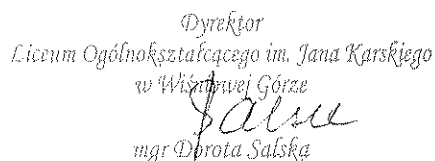 Dyrektor
Liceum Ogólnokształcącego im. Jana Karskiego
w Wiśniowej Górze
mgr Dorota Salska